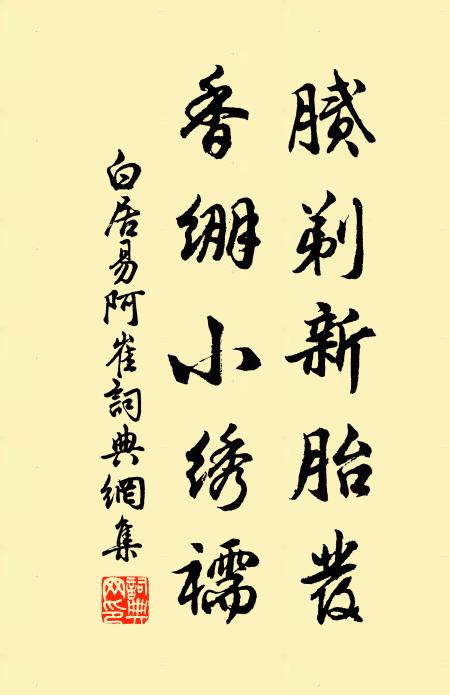 膩剃新胎發
香绷小绣襦
白居易阿崔詞典網集
詞典网印